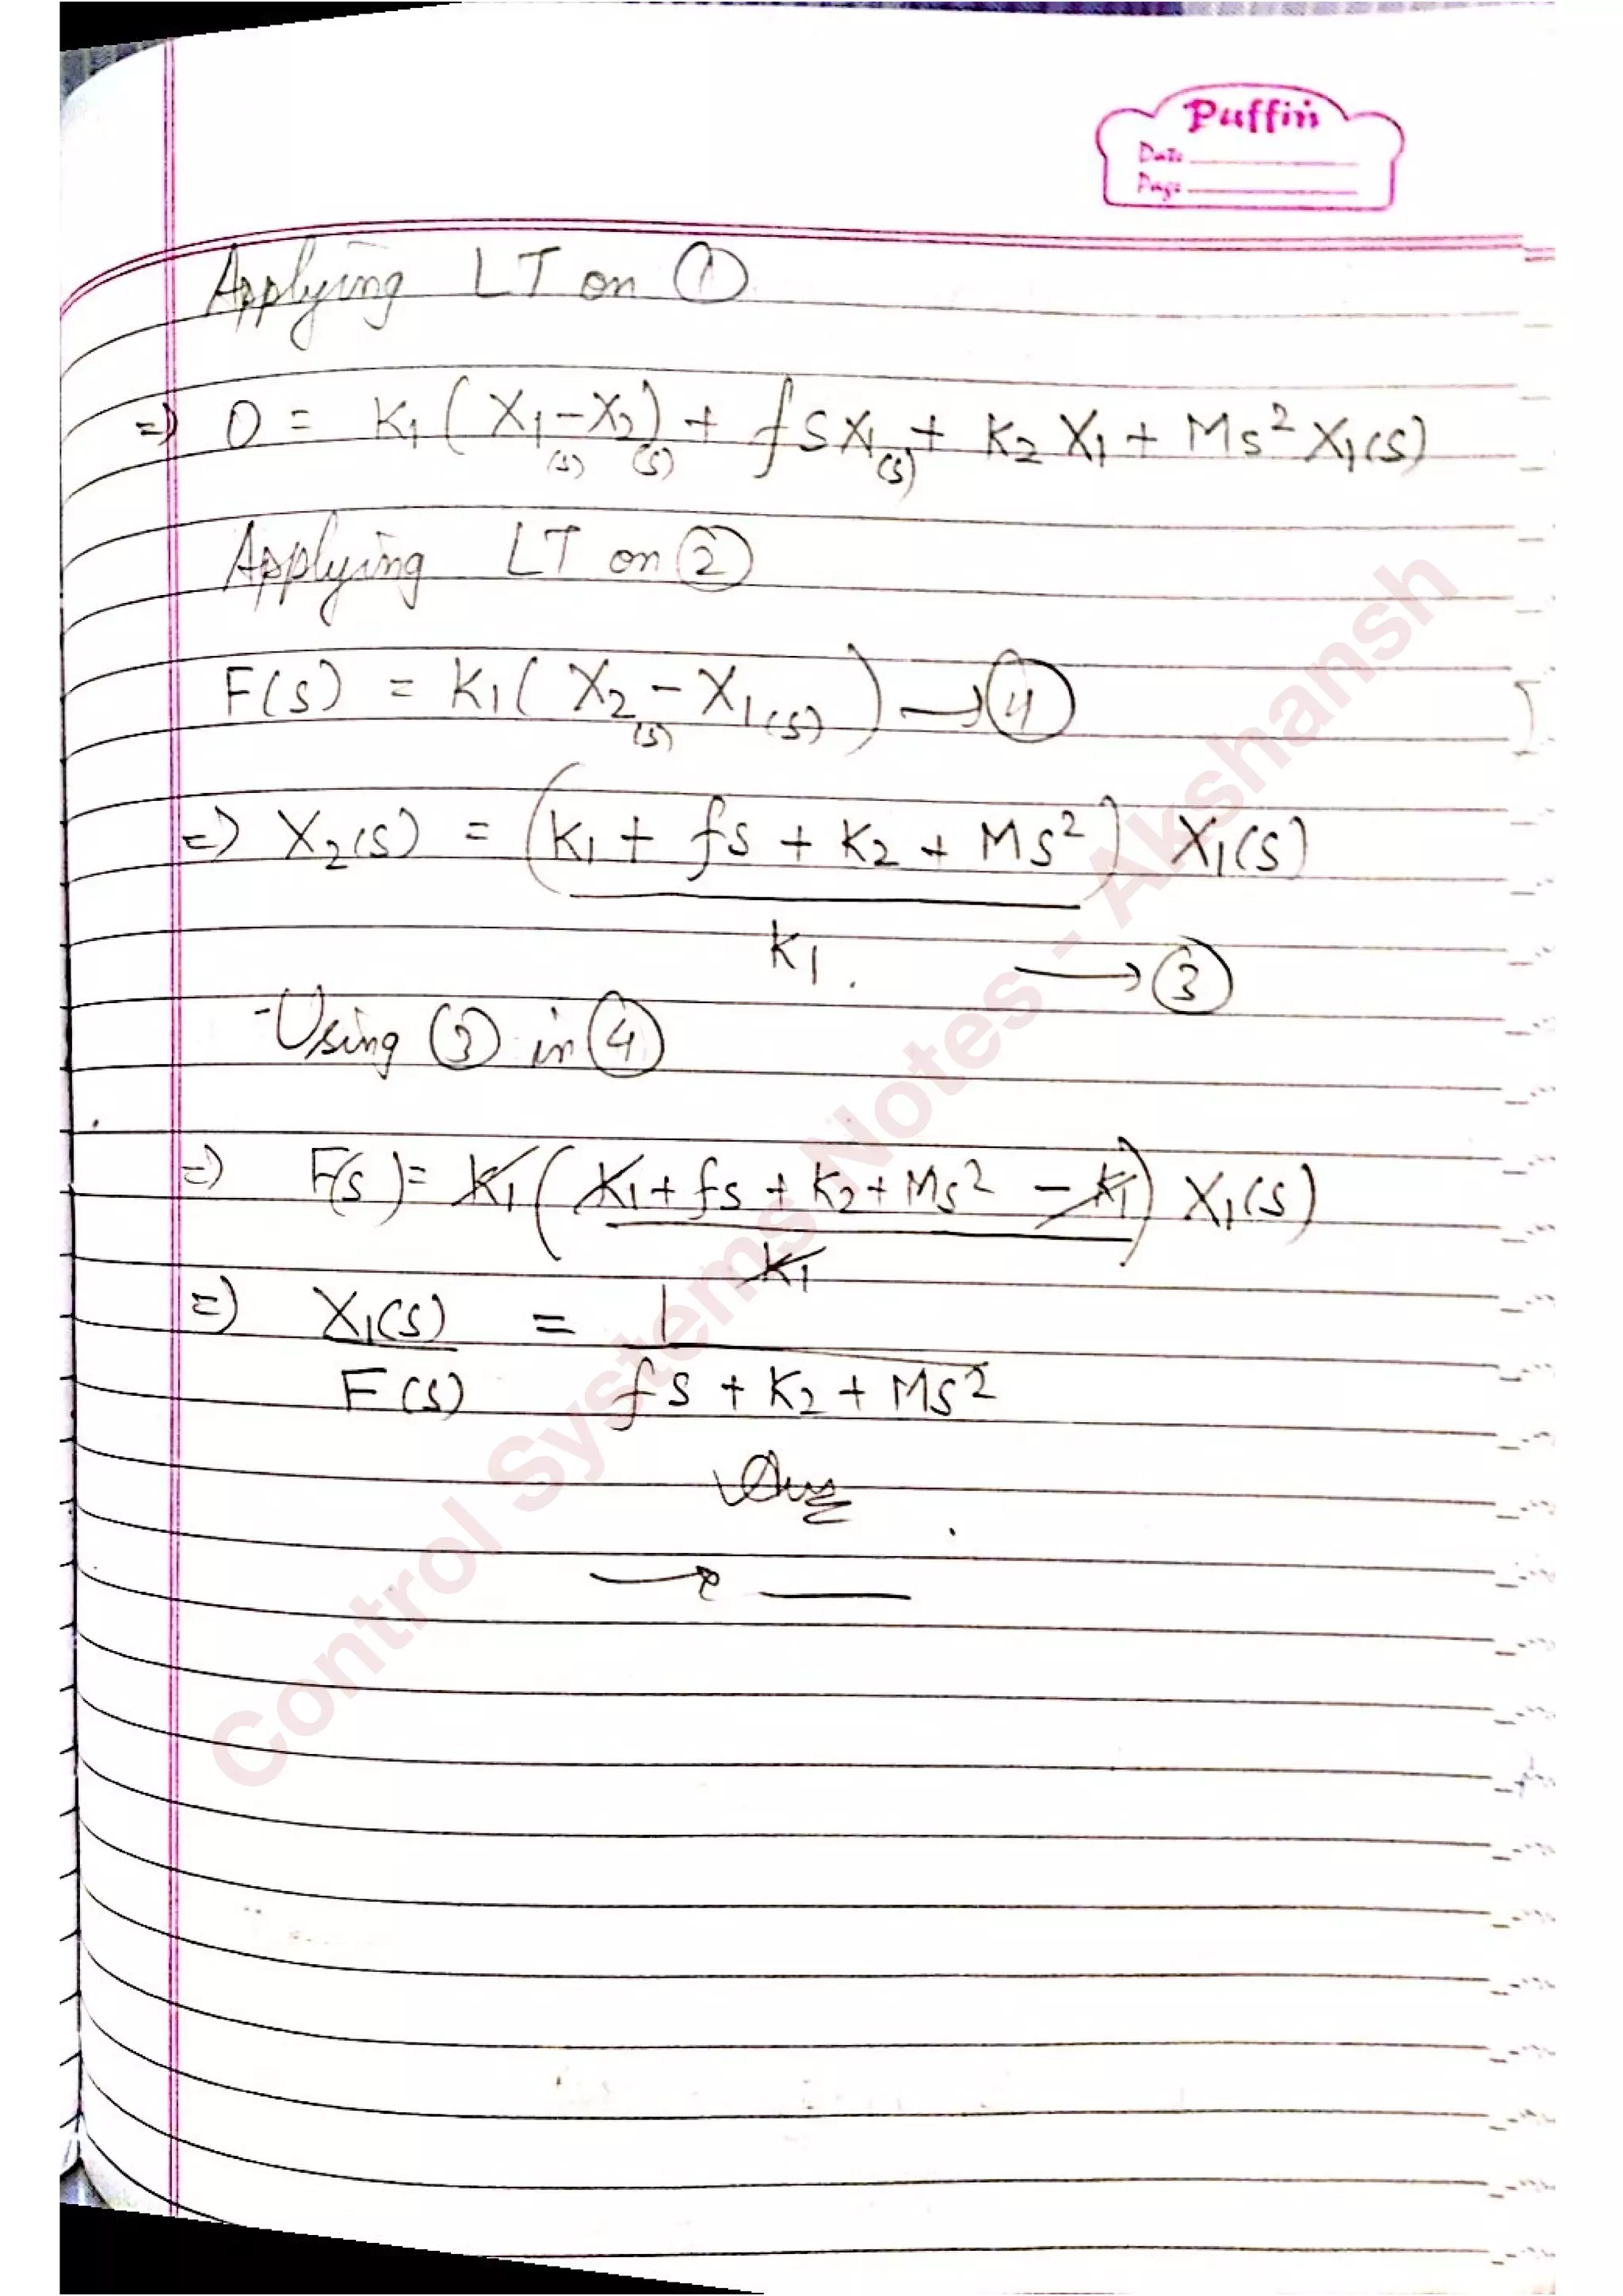 Puffin
Date
Page
Applying LT on ①
=> 0 = K₁ ( X₁(s) - X₂(s) ) + fsX₁(s) + K₂ X₁ + Ms² X₁(s)
Applying LT on ②
F(s) = K₁ ( X₂(s) - X₁(s) ) → ④
=> X₂(s) = ( K₁ + fs + K₂ + Ms² ) X₁(s)
K₁. → ③
Using ③ in ④
=> F(s) = K₁ ( K₁ + fs + K₂ + Ms² - K₁ ) X₁(s)
K₁
=> X₁(s) = 1
F(s) fs + K₂ + Ms²
Ans
Control Systems Notes - Akshansh